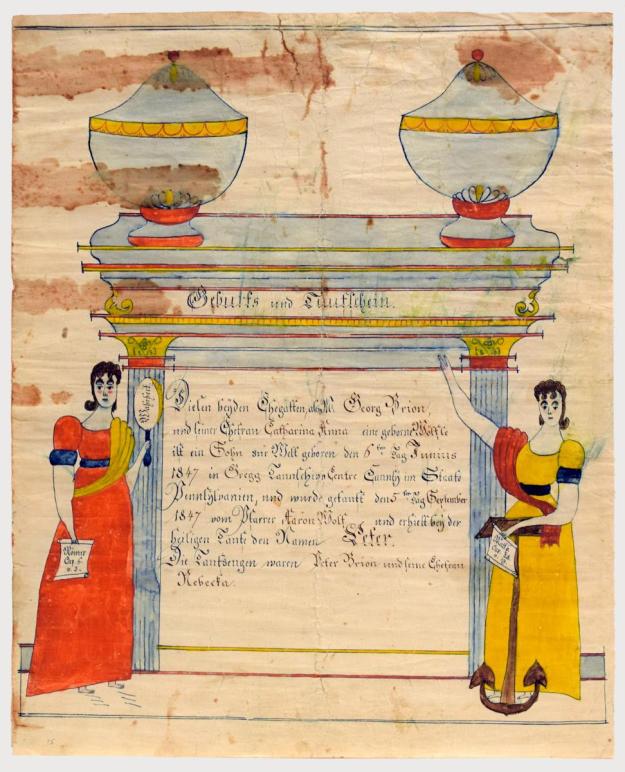 Geburts und Taufschein.
Wahrheit
Diesen beyden Ehegatten, als M. Georg Brion,
und seiner Ehefrau Catharina Anna eine geborne Wölfle
ist ein Sohn zur Welt geboren den 6ten Tag Junius
1847 in Gregg Taunschip Centre Caunty im Staate
Pennsylvanien, und wurde getauft den 5ten Tag September
1847 vom Pfarrer Aaron Wolf und erhielt bey der
heiligen Taufe den Namen Peter.
Die Taufzeugen waren Peter Brion und seine Ehefrau
Rebecka.
Römer
Cap 6
v. 3.
15